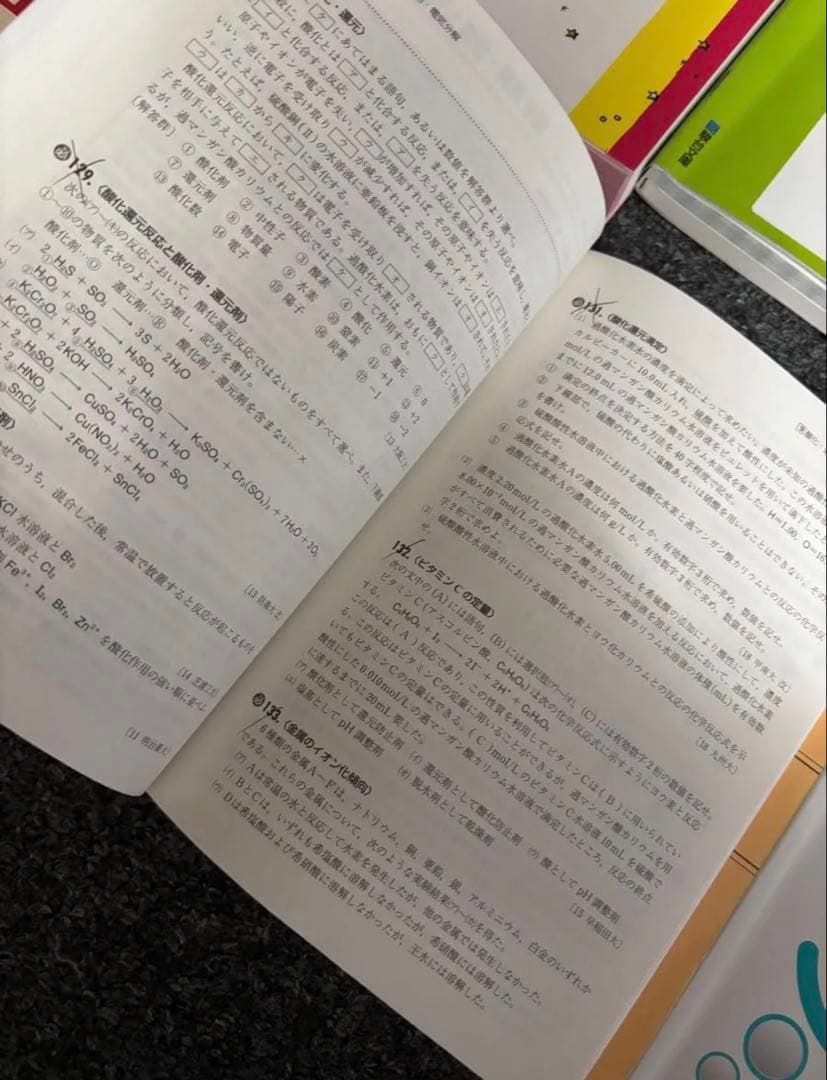 ・電気分解
・還元〉
にあてはまる語句，あるいは数値を解答群より選べ。
酸化とは ア と化合する反応，または，
う。たとえば，硫酸銅(Ⅱ)の水溶液に亜鉛板を浸すと，銅イオンは
は カ から キ に変化する。
酸化還元反応において，
子を相手に与えて
るが，過マンガン酸カリウムとの反応では ケ として作用する。
〔解答群〕
① 酸化剤 ② 中性子 ③ 酸素 ④ 酸化 ⑤ 還元 ⑥ 0
⑦ 還元剤 ⑧ 物質量 ⑨ 水素 ⑩ 窒素 ⑪ +1 ⑫ +2
⑬ 酸化数 ⑭ 電子 ⑮ 陽子 ⑯ 炭素 ⑰ −1 ⑱ −2
129. 〈酸化還元反応と酸化剤・還元剤〉
次の(ア)〜(キ)の反応において，酸化還元反応ではないものをすべて選べ。また，下線
①〜⑩の物質を次のように分類し，記号を書け。
酸化剤…O 還元剤…R 酸化剤・還元剤を含まない…×
(ア) 2H₂S + SO₂ ⟶ 3S + 2H₂O
(イ) H₂O₂ + SO₂ ⟶ H₂SO₄
K₂Cr₂O₇ + 4H₂SO₄ + 3H₂O₂ ⟶ K₂SO₄ + Cr₂(SO₄)₃ + 7H₂O + 3O₂
K₂Cr₂O₇ + 2KOH ⟶ 2K₂CrO₄ + H₂O
+ 2H₂SO₄ ⟶ CuSO₄ + 2H₂O + SO₂
+ 2HNO₃ ⟶ Cu(NO₃)₂ + H₂O
SnCl₂ ⟶ 2FeCl₂ + SnCl₄
剤〉
せのうち，混合した後，常温で放置すると反応が起こるものを
KCl 水溶液と Br₂
水溶液と Cl₂
Fe³⁺, I₂, Br₂, Zn²⁺ を酸化作用の強い順に並べよ
〔11 明治薬大〕
131. 〈酸化還元滴定〉
(1) 過酸化水素水の濃度を滴定によって求めたい。濃度が未知の過酸
カルビーカーに 10.0mL 入れ，硫酸を加えて酸性にした。この水溶
mol/L の過マンガン酸カリウム水溶液をビュレットを用いて滴下した
までに 12.0mL の過マンガン酸カリウム水溶液を要した。H=1.00, O=16
① 滴定の終点を決定する方法を 40 字程度で記せ。
② 下線部で，硫酸の代わりに塩酸あるいは硝酸を用いることはできない。その
を書け。
③ 硫酸酸性水溶液中における過酸化水素と過マンガン酸カリウムとの反応の化学反
応式を記せ。
④ 過酸化水素水 A の濃度は何 mol/L か。有効数字 3 桁で求め，数値を記せ。
⑤ 過酸化水素水 A の濃度は何 g/L か。有効数字 3 桁で求め，数値を記せ。
〔18 甲南大 改〕
(2) 濃度 2.20mol/L の過酸化水素水 5.00mL を希硫酸の添加により酸性にして，濃度
6.00×10⁻²mol/L の過マンガン酸カリウム水溶液を加える反応において，過酸化水素
がすべて消費されるために必要な過マンガン酸カリウム水溶液の体積(mL)を有効数
字 2 桁で求めよ。
(3) 硫酸酸性水溶液中における過酸化水素とヨウ化カリウムとの反応の化学反応式を示
せ。
〔18 九州大〕
132. 〈ビタミンCの定量〉
次の文中の(A)には語句，(B)には選択肢(ア)〜(オ)，(C)には有効数字 2 桁の数値を記せ。
ビタミンC(アスコルビン酸，C₆H₈O₆)は次の化学反応式に示すようにヨウ素と反応
する。 C₆H₈O₆ + I₂ ⟶ 2I⁻ + 2H⁺ + C₆H₆O₆
この反応は(A)反応であり，この性質を利用してビタミンCは(B)に用いられてい
る。この反応はビタミンCの定量に用いることができるが，過マンガン酸カリウムを用
いてもビタミンCの定量はできる。(C)mol/L のビタミンC水溶液 10mL を硫酸で
酸性にした 0.010mol/L の過マンガン酸カリウム水溶液で滴定したところ，反応の終点
に達するまでに 20mL 要した。
(ア) 酸化剤として還元防止剤 (イ) 還元剤として酸化防止剤 (ウ) 酸として pH 調整剤
(エ) 塩基として pH 調整剤 (オ) 脱水剤として乾燥剤
〔15 早稲田大〕
133. 〈金属のイオン化傾向〉
6 種類の金属 A〜F は，ナトリウム，銅，亜鉛，銀，アルミニウム，白金のいずれか
である。これらの金属について，次のような実験結果(ア)〜(カ)を得た。
(ア) A は常温の水と反応して水素を発生したが，他の金属では発生しなかった。
(イ) B と C は，いずれも希塩酸に溶解しなかったが，希硝酸には溶解した。
(ウ) D は希塩酸および希硝酸に溶解しなかったが，王水には溶解した。
駿台文庫